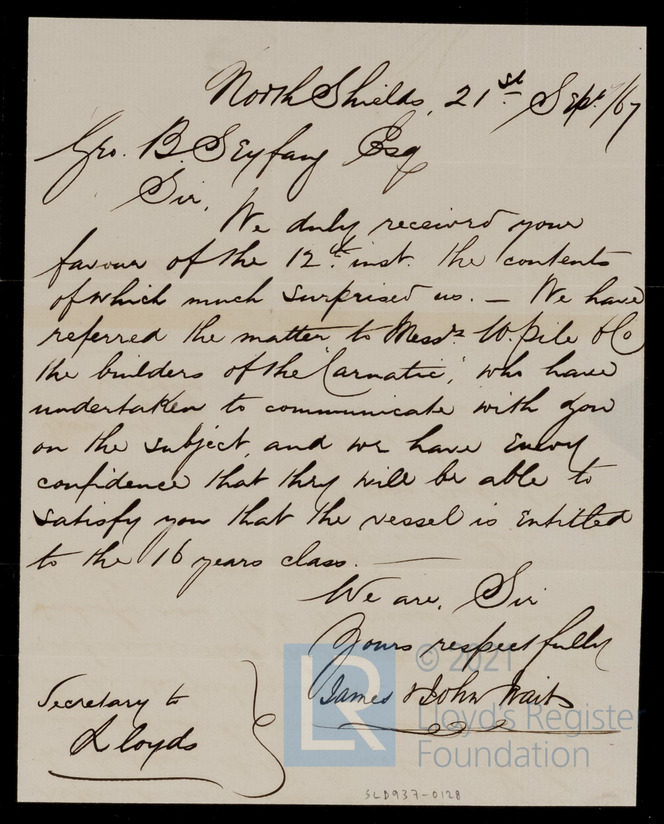 North Shields, 21st Sept. /67
Geo. B. Seyfang Esq
Sir,
We duly received your
favour of the 12th. inst. the contents
of which much surprised us. — We have
referred the matter to Messrs W. Pile & Co
the builders of the "Carnatic," who have
undertaken to communicate with you
on the subject, and we have every
confidence that they will be able to
satisfy you that the vessel is entitled
to the 16 years class. —
We are, Sir
Yours respectfully
James & John Wait
Secretary to
Lloyds
LR
© 2021
Lloyd's Register
Foundation
SLD937-0128